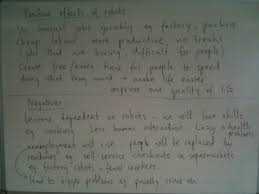 Positive effects of robots
do manual jobs quickly eg factory, packing
cheap labour more productive, no breaks
(jobs that are boring/difficult for people)
Create free/extra time for people to spend
doing what they want → make life easier
improve our quality of life
Negatives
become dependent on robots – we will lose skills
eg cooking Less human interaction Lazy → health problems
unemployment will rise people will be replaced by
machines eg self-service checkouts in supermarkets
eg factory robots = fewer workers.
lead to bigger problems eg poverty crime etc